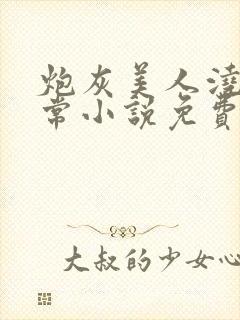 炮灰美人澆
常小說免費
大叔的少女心